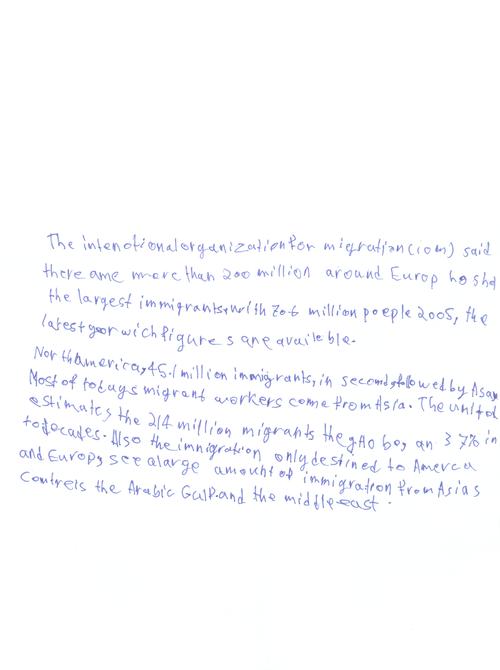 The intenotional organization for migration (iom) said
there ame more than 200 million around Europ hoshd
the largest immigrants, with 70.6 million poeple 2005, the
latest year wich figures are availeble.
North america, 45.1 million immigrants, in second, followed by Asan
Most of todays migrant workers come from Asia. The united
estimates the 214 million migrants the g Ao be, an 37% in
to decades. Also the imnigration only destined to Amerca
and Europ, see a large amount of immigration from Asias
Contrels the Arabic Gulp.and the middle-east.